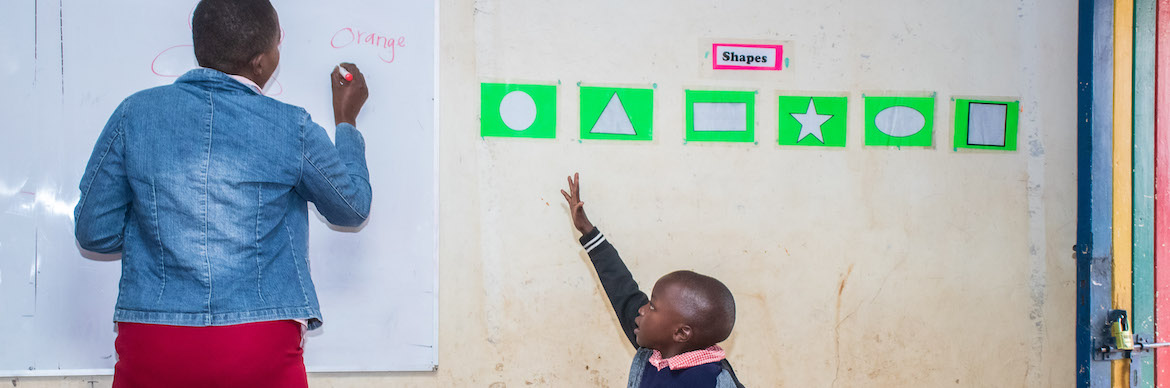 Orange
Shapes